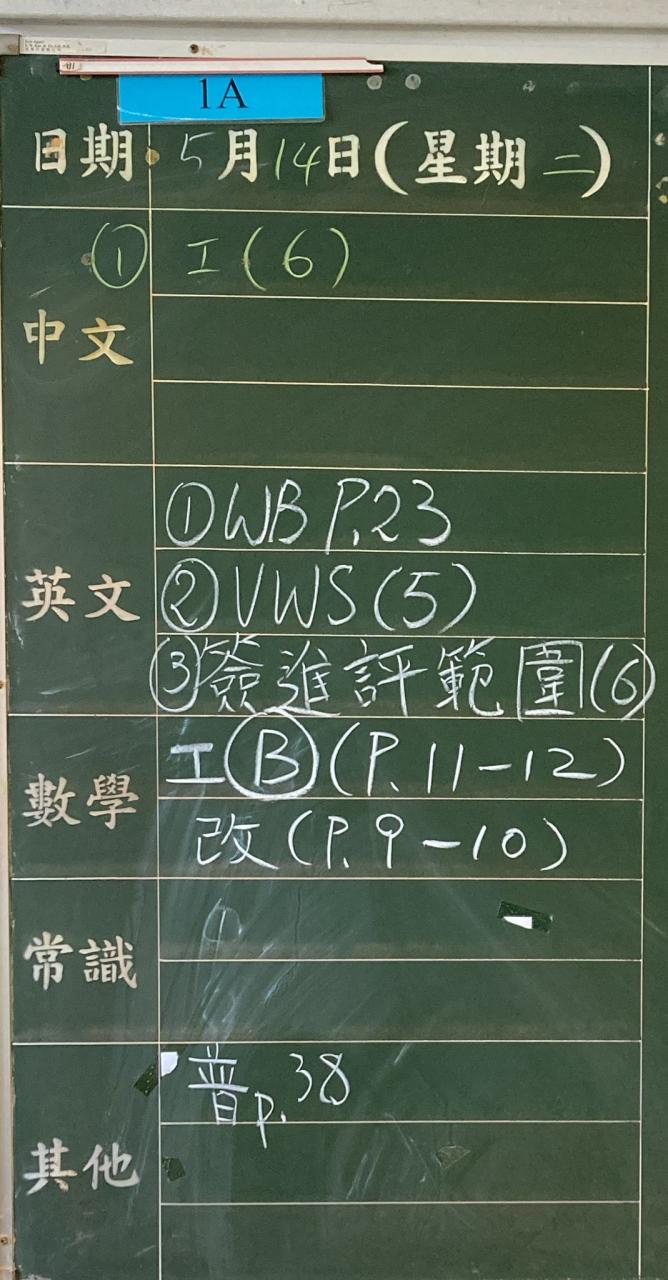 1A
日期 5月14日(星期二)
① 工(6)
中文
①WB P.23
英文 ②VWS(5)
③簽進評範圍(6)
數學 工Ⓑ(P.11-12)
改(P.9-10)
常識
普p.38
其他